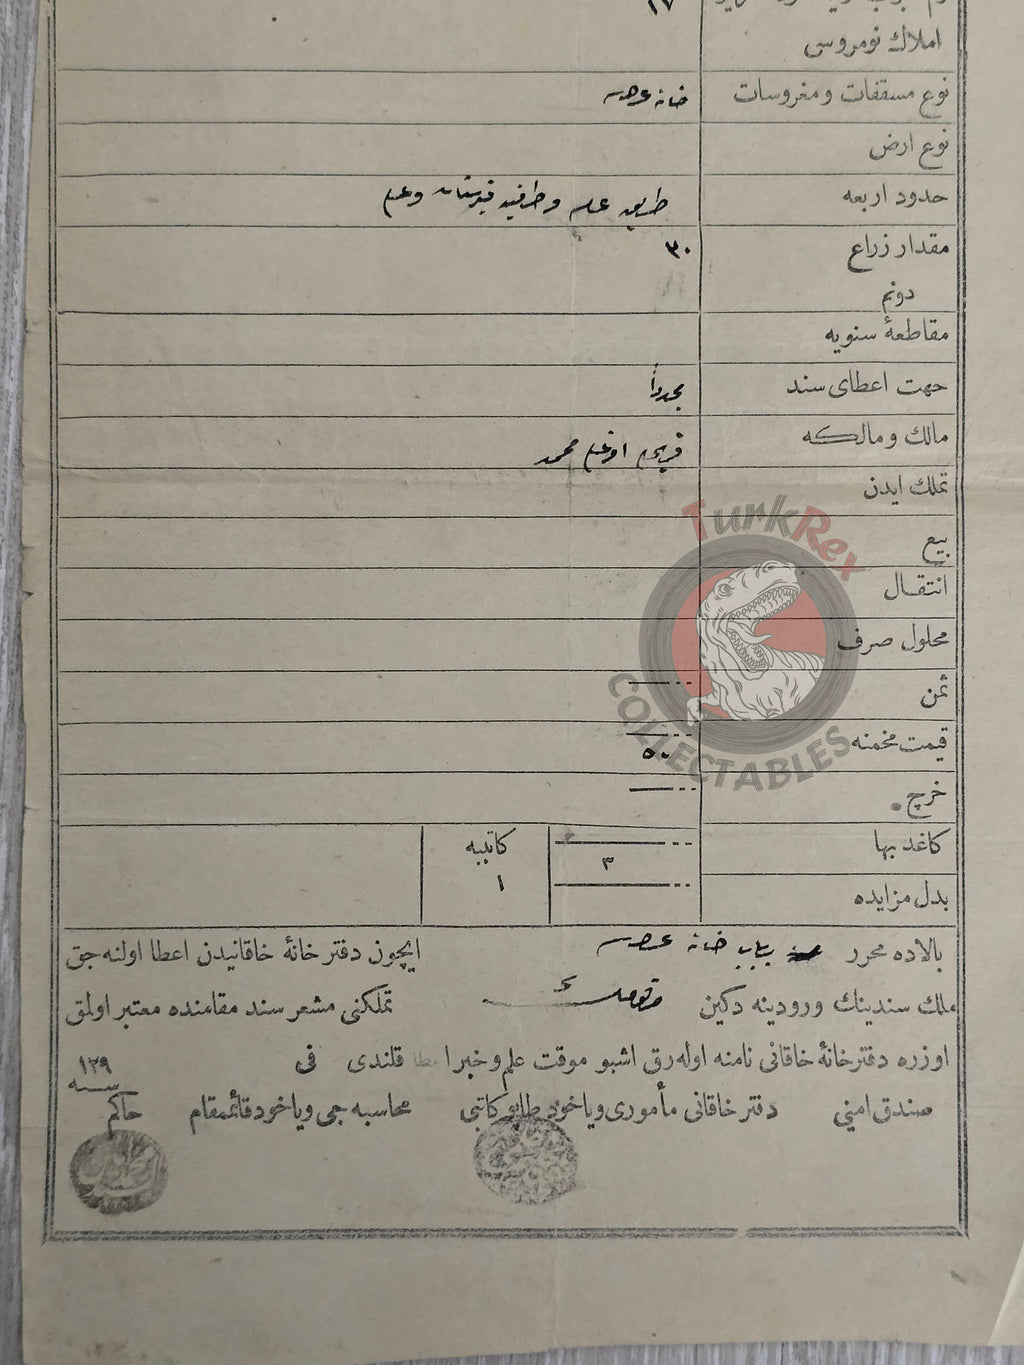 ١٧
املاك نومروسی
نوع مسقفات و مغروسات خانه عرصه
نوع ارض
حدود اربعه طریق عام وطرفین قبرستان و
مقدار زراع ٣٠
دونم
مقاطعۀ سنویه
جهت اعطای سند مجدداً
مالك و مالكه اوغلی محمد
تملك ایدن
بیع
انتقـال
محلول صرف
ثمن
قیمت مخمنه ٥٠
خرج
كاغد بها ٣ كاتبیه ١
بدل مزایده
بالاده محرر خانه عرصه ایچون دفتر خانۀ خاقانیدن اعطا اولنه جق
ملك سندینك ورودینه دكین تملكنی مشعر سند مقامنده معتبر اولمق
اوزره دفتر خانۀ خاقانی نامنه اوله رق اشبو موقت علم و خبر اعطا قلندی فی ١٢٩
سنه
صندق امینی دفتر خاقانی مأموری ویاخود طاپو كاتبی محاسبه جی ویاخود قائممقام حاكم
TurkRex
COLLECTABLES